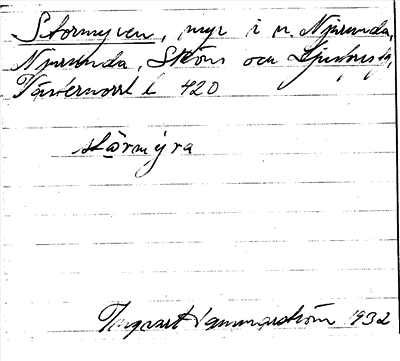 Stormyren, myr i n. Njurunda,
Njurunda, Sköns och Ljustorps tg,
Västernorrl. l. 420
stårmýra
Ingvart Hammarström 1932